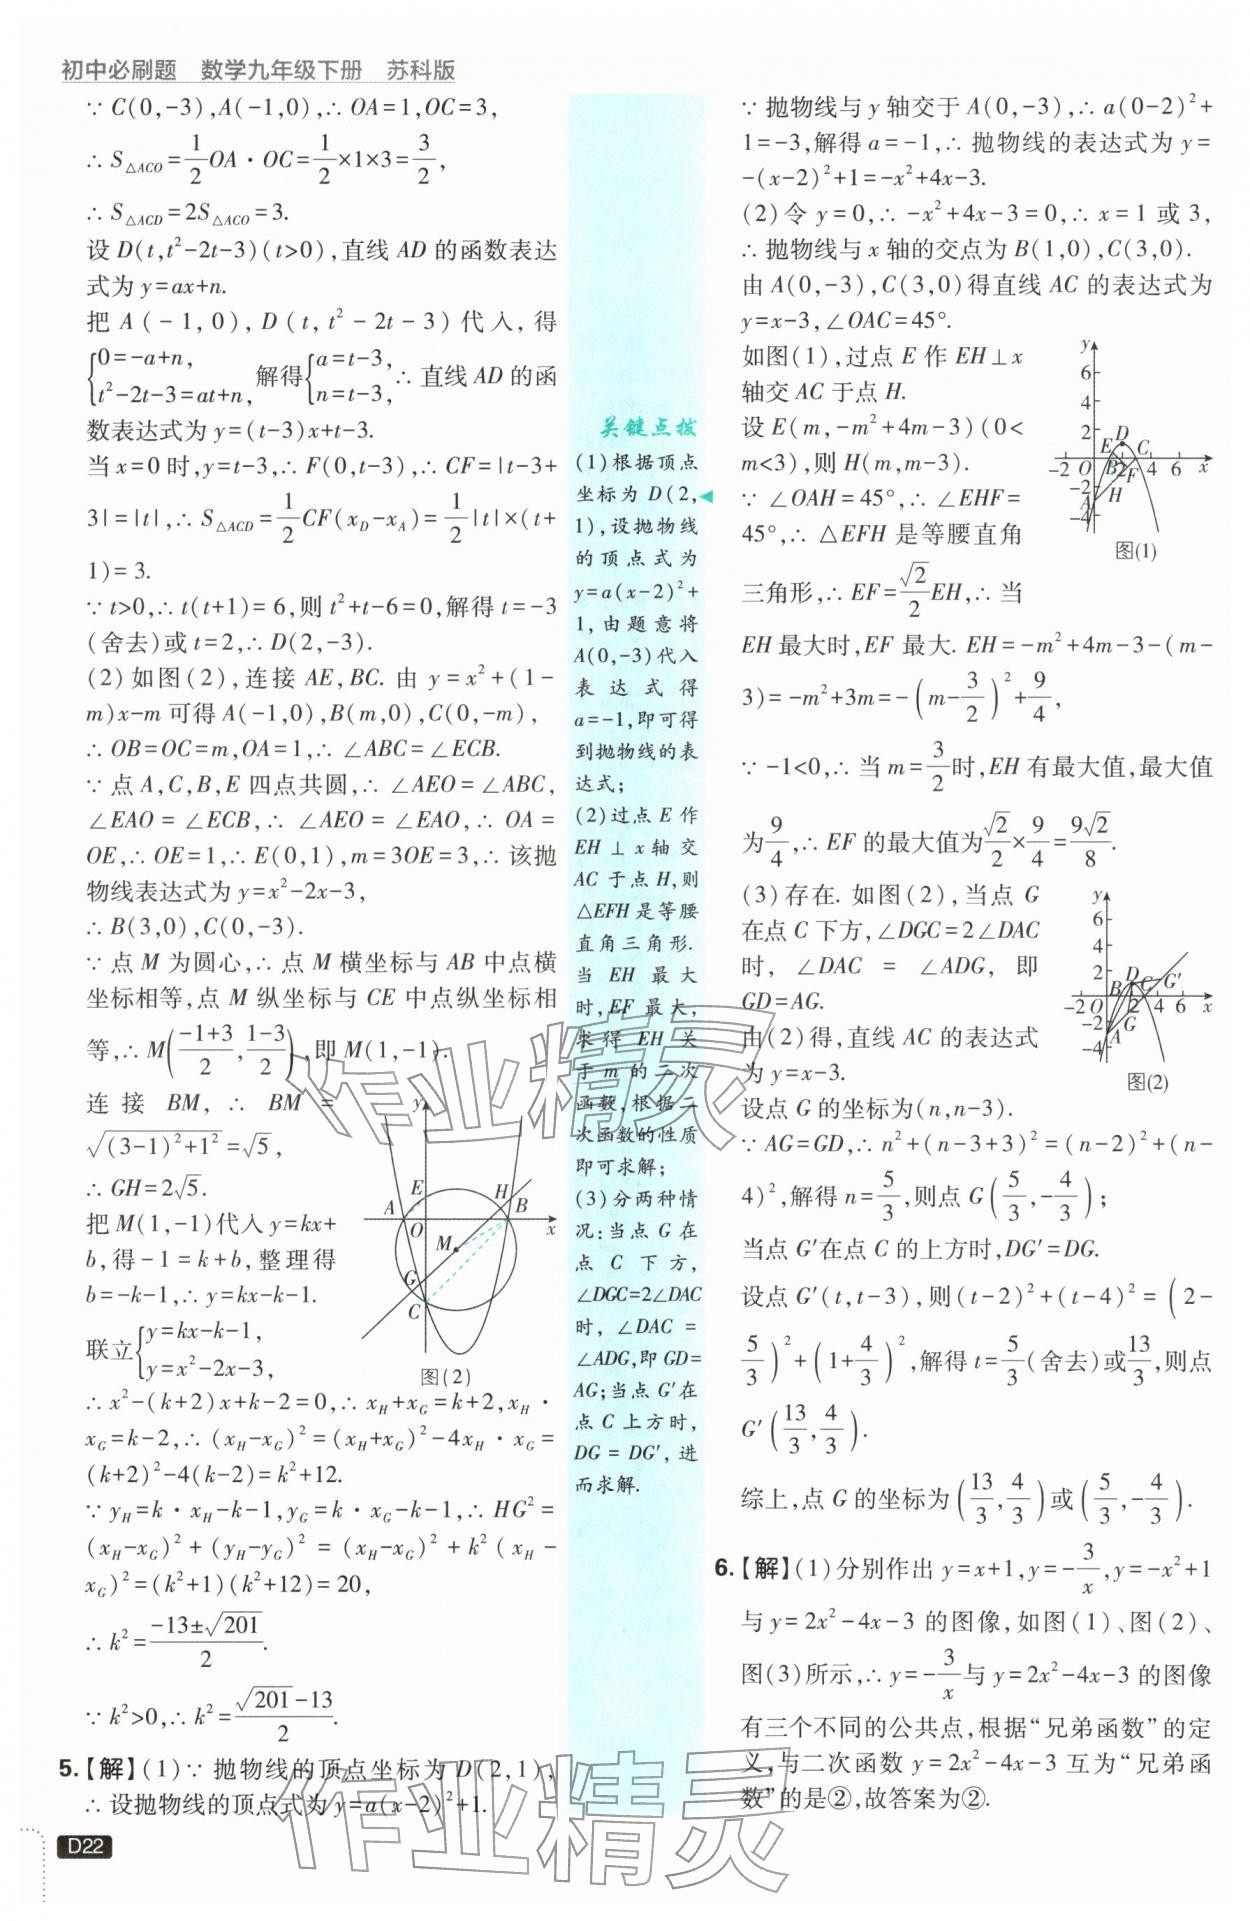 初中必刷题 数学九年级下册 苏科版
∵ C(0,-3),A(-1,0),∴ OA=1,OC=3,
∴ S△ACO=1/2 OA·OC=1/2×1×3=3/2,
∴ S△ACD=2S△ACO=3.
设 D(t,t²-2t-3)(t>0),直线 AD 的函数表达
式为 y=ax+n.
把 A(-1,0),D(t,t²-2t-3)代入,得
{0=-a+n, t²-2t-3=at+n, 解得{a=t-3, n=t-3, ∴ 直线 AD 的函
数表达式为 y=(t-3)x+t-3.
当 x=0 时,y=t-3,∴ F(0,t-3),∴ CF=|t-3+
3|=|t|,∴ S△ACD=1/2 CF(x_D-x_A)=1/2|t|×(t+
1)=3.
∵ t>0,∴ t(t+1)=6,则 t²+t-6=0,解得 t=-3
(舍去)或 t=2,∴ D(2,-3).
(2)如图(2),连接 AE,BC. 由 y=x²+(1-
m)x-m 可得 A(-1,0),B(m,0),C(0,-m),
∴ OB=OC=m,OA=1,∴ ∠ABC=∠ECB.
∵ 点 A,C,B,E 四点共圆,∴ ∠AEO=∠ABC,
∠EAO=∠ECB,∴ ∠AEO=∠EAO,∴ OA=
OE,∴ OE=1,∴ E(0,1),m=3OE=3,∴ 该抛
物线表达式为 y=x²-2x-3,
∴ B(3,0),C(0,-3).
∵ 点 M 为圆心,∴ 点 M 横坐标与 AB 中点横
坐标相等,点 M 纵坐标与 CE 中点纵坐标相
等,∴ M((-1+3)/2,(1-3)/2),即 M(1,-1).
连接 BM,∴ BM=
√((3-1)²+1²)=√5,
∴ GH=2√5.
把 M(1,-1)代入 y=kx+
b,得-1=k+b,整理得
b=-k-1,∴ y=kx-k-1.
联立{y=kx-k-1, y=x²-2x-3,
y
E
H
A
O
B
x
M
G
C
图(2)
∴ x²-(k+2)x+k-2=0,∴ x_H+x_G=k+2,x_H·
x_G=k-2,∴ (x_H-x_G)²=(x_H+x_G)²-4x_H·x_G=
(k+2)²-4(k-2)=k²+12.
∵ y_H=k·x_H-k-1,y_G=k·x_G-k-1,∴ HG²=
(x_H-x_G)²+(y_H-y_G)²=(x_H-x_G)²+k²(x_H-
x_G)²=(k²+1)(k²+12)=20,
∴ k²=(-13±√201)/2.
∵ k²>0,∴ k²=(√201-13)/2.
5.【解】(1)∵ 抛物线的顶点坐标为 D(2,1),
∴ 设抛物线的顶点式为 y=a(x-2)²+1.
D22
关键点拨
(1)根据顶点
坐标为 D(2,
1),设抛物线
的顶点式为
y=a(x-2)²+
1,由题意将
A(0,-3)代入
表达式得
a=-1,即可得
到抛物线的表
达式;
(2)过点 E 作
EH⊥x 轴交
AC 于点 H,则
△EFH 是等腰
直角三角形.
当 EH 最大
时,EF 最大,
求得 EH 关
于 m 的二次
函数,根据二
次函数的性质
即可求解;
(3)分两种情
况:当点 G 在
点 C 下方,
∠DGC=2∠DAC
时,∠DAC=
∠ADG,即 GD=
AG;当点 G′在
点 C 上方时,
DG=DG′,进
而求解.
∵ 抛物线与 y 轴交于 A(0,-3),∴ a(0-2)²+
1=-3,解得 a=-1,∴ 抛物线的表达式为 y=
-(x-2)²+1=-x²+4x-3.
(2)令 y=0,∴ -x²+4x-3=0,∴ x=1 或 3,
∴ 抛物线与 x 轴的交点为 B(1,0),C(3,0).
由 A(0,-3),C(3,0)得直线 AC 的表达式为
y=x-3,∠OAC=45°.
如图(1),过点 E 作 EH⊥x
轴交 AC 于点 H.
设 E(m,-m²+4m-3)(0<
m<3),则 H(m,m-3).
∵ ∠OAH=45°,∴ ∠EHF=
45°,∴ △EFH 是等腰直角
三角形,∴ EF=√2/2 EH,∴ 当
y
6
4
2
E D
C
-2 O B 2 F 4 6 x
-2
A H
-4
图(1)
EH 最大时,EF 最大. EH=-m²+4m-3-(m-
3)=-m²+3m=-(m-3/2)²+9/4,
∵ -1<0,∴ 当 m=3/2时,EH 有最大值,最大值
为9/4,∴ EF 的最大值为√2/2×9/4=9√2/8.
(3)存在. 如图(2),当点 G
在点 C 下方,∠DGC=2∠DAC
时,∠DAC=∠ADG,即
GD=AG.
由(2)得,直线 AC 的表达式
为 y=x-3.
y
6
4
2
D
B C G′
-2 O 2 4 6 x
-2 G
A
-4
图(2)
设点 G 的坐标为(n,n-3).
∵ AG=GD,∴ n²+(n-3+3)²=(n-2)²+(n-
4)²,解得 n=5/3,则点 G(5/3,-4/3);
当点 G′在点 C 的上方时,DG′=DG.
设点 G′(t,t-3),则(t-2)²+(t-4)²=(2-
5/3)²+(1+4/3)²,解得 t=5/3(舍去)或13/3,则点
G′(13/3,4/3).
综上,点 G 的坐标为(13/3,4/3)或(5/3,-4/3).
6.【解】(1)分别作出 y=x+1,y=-3/x,y=-x²+1
与 y=2x²-4x-3 的图像,如图(1)、图(2)、
图(3)所示,∴ y=-3/x与 y=2x²-4x-3 的图像
有三个不同的公共点,根据“兄弟函数”的定
义,与二次函数 y=2x²-4x-3 互为“兄弟函
数”的是②,故答案为②.
作业精灵
作业精灵